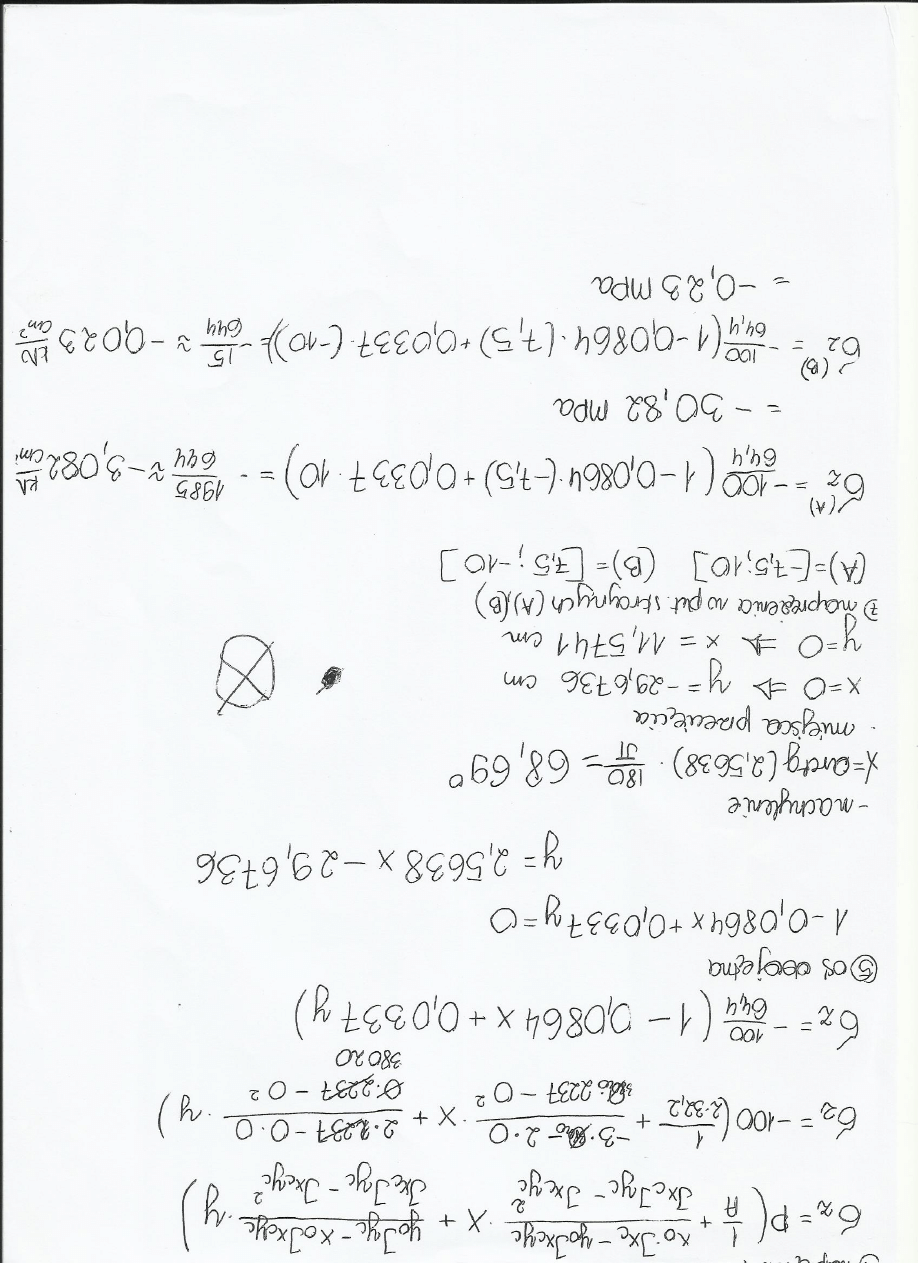 σz = P( 1/A + (x₀·Jxc − y₀Jxcyc)/(JxcJyc − Jxcyc²) · x + (y₀Jyc − x₀Jxcyc)/(JxcJyc − Jxcyc²) · y )
σz = −100( 1/(2·32,2) + (−3· − 2·0)/( ·2237 − 0²) · x + (2·2237 − 0·0)/(0·2237 − 0²) · y )
38020
σz = − 100/64,4 (1 − 0,0864 x + 0,0337 y)
⑤ oś obojętna
1 − 0,0864x + 0,0337y = 0
y = 2,5638 x − 29,6736
- nachylenie
α = arctg(2,5638) · 180/π = 68,69°
- miejsca przecięcia
x=0 ⇒ y = −29,6736 cm
y=0 ⇒ x = 11,5741 cm
7) naprężenia w pkt. skrajnych (A),(B)
(A)=[−7,5;10] (B)=[7,5;−10]
σz(A) = − 100/64,4 (1 − 0,0864·(−7,5) + 0,0337·10) = − 1985/644 ≈ −3,082 kN/cm²
= −30,82 MPa
σz(B) = − 100/64,4 (1 − 0,0864·(7,5) + 0,0337·(−10)) = − 15/644 ≈ −0,023 kN/cm²
= −0,23 MPa